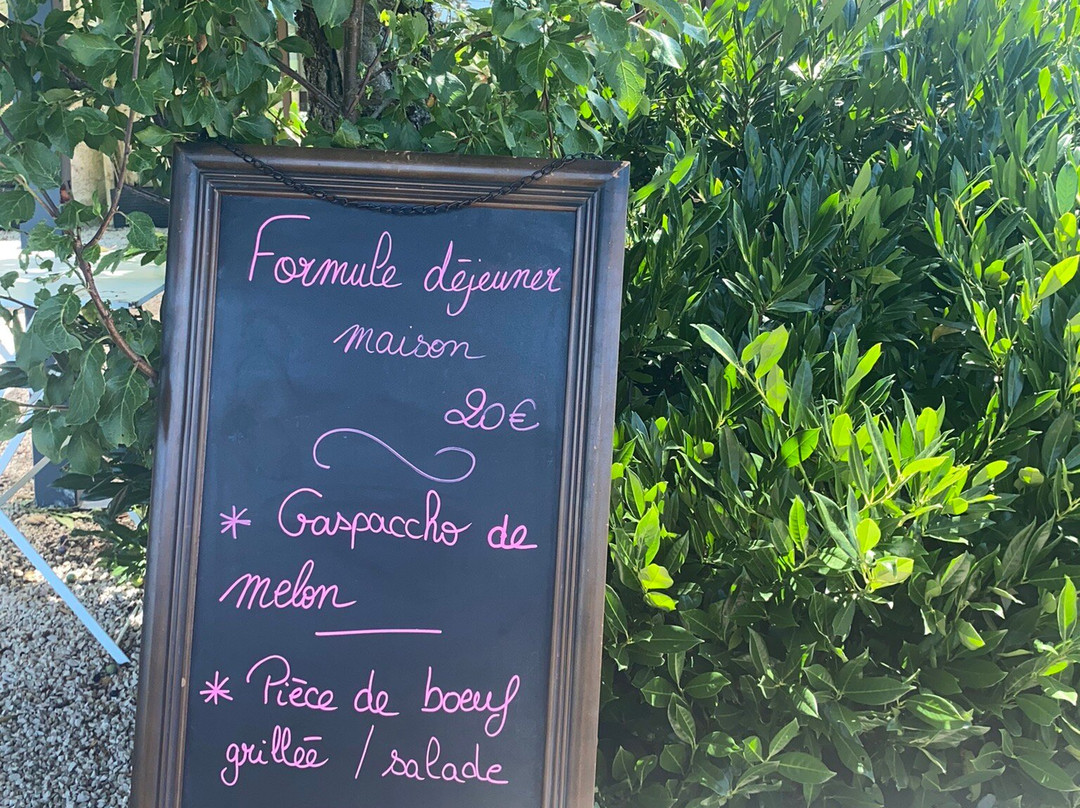 Formule déjeuner
maison
20€
* Gaspaccho de
melon
* Pièce de boeuf
grillée / salade